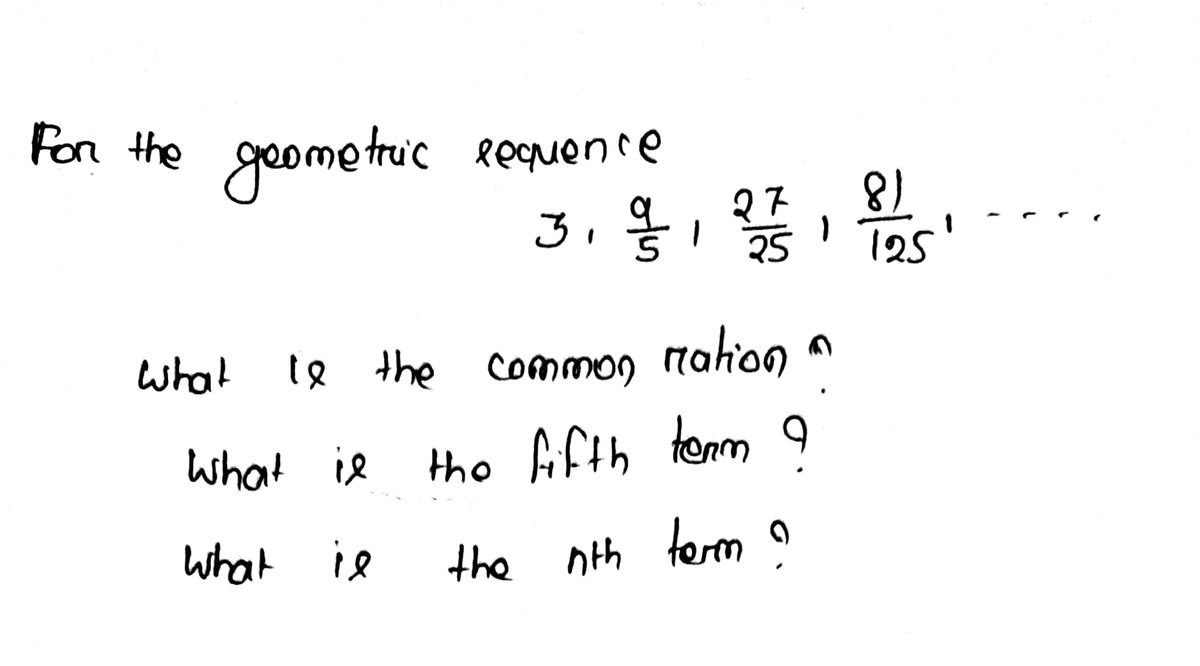 For the geometric sequence
3, 9/5, 27/25, 81/125, ----
what is the common ration?
what is the fifth term?
what is the nth term?